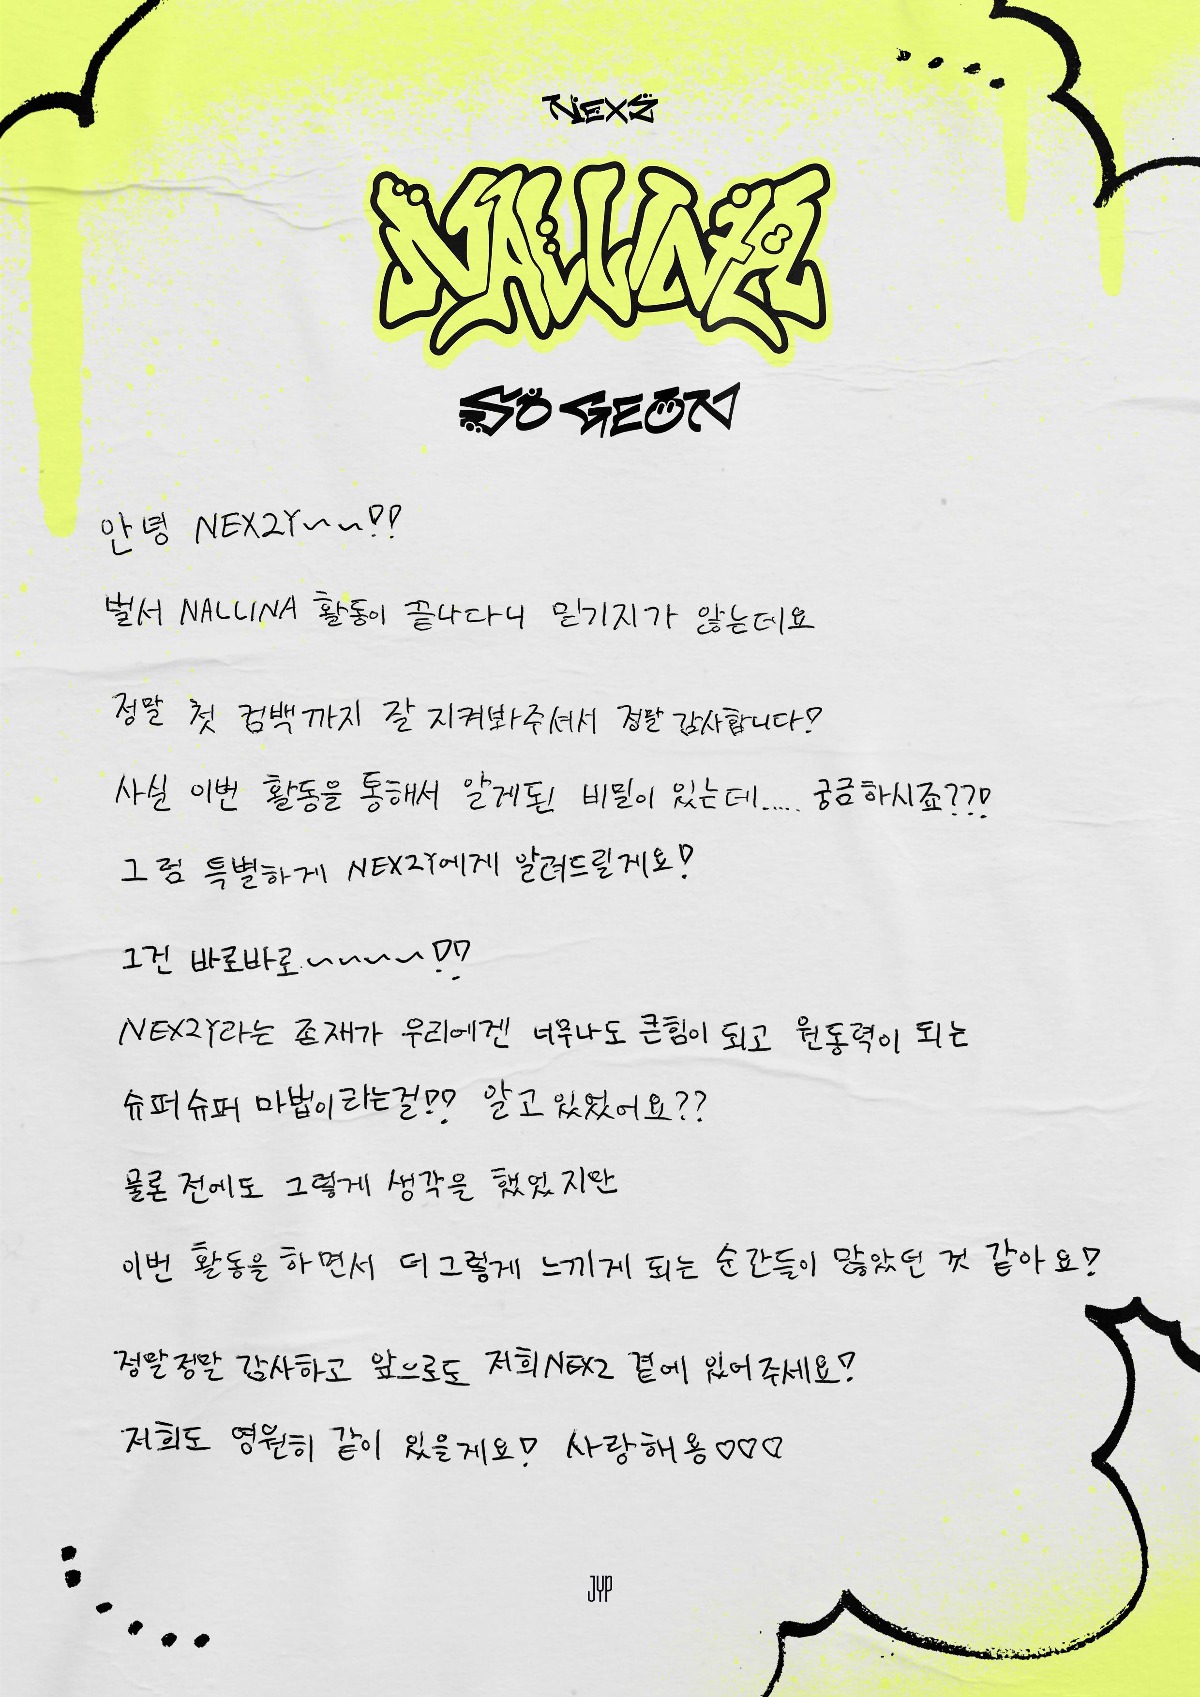 NEXZ
NALLINA
SO GEON
안녕 NEX2Y~~!!
벌서 NALLINA 활동이 끝나다니 믿기지가 않는데요
정말 첫 컴백까지 잘 지켜봐주셔서 정말 감사합니다!
사실 이번 활동을 통해서 알게된 비밀이 있는데..... 궁금하시죠??!
그럼 특별하게 NEX2Y에게 알려드릴게요!
그건 바로바로~~~~!!
NEX2Y라는 존재가 우리에겐 너무나도 큰힘이 되고 원동력이 되는
슈퍼슈퍼 마법이라는걸!! 알고있었어요??
물론 전에도 그렇게 생각을 했었지만
이번 활동을 하면서 더 그렇게 느끼게 되는 순간들이 많았던 것 같아요!
정말정말 감사하고 앞으로도 저희NEX2 곁에 있어주세요!
저희도 영원히 같이 있을게요! 사랑해용♡♡♡
JYP